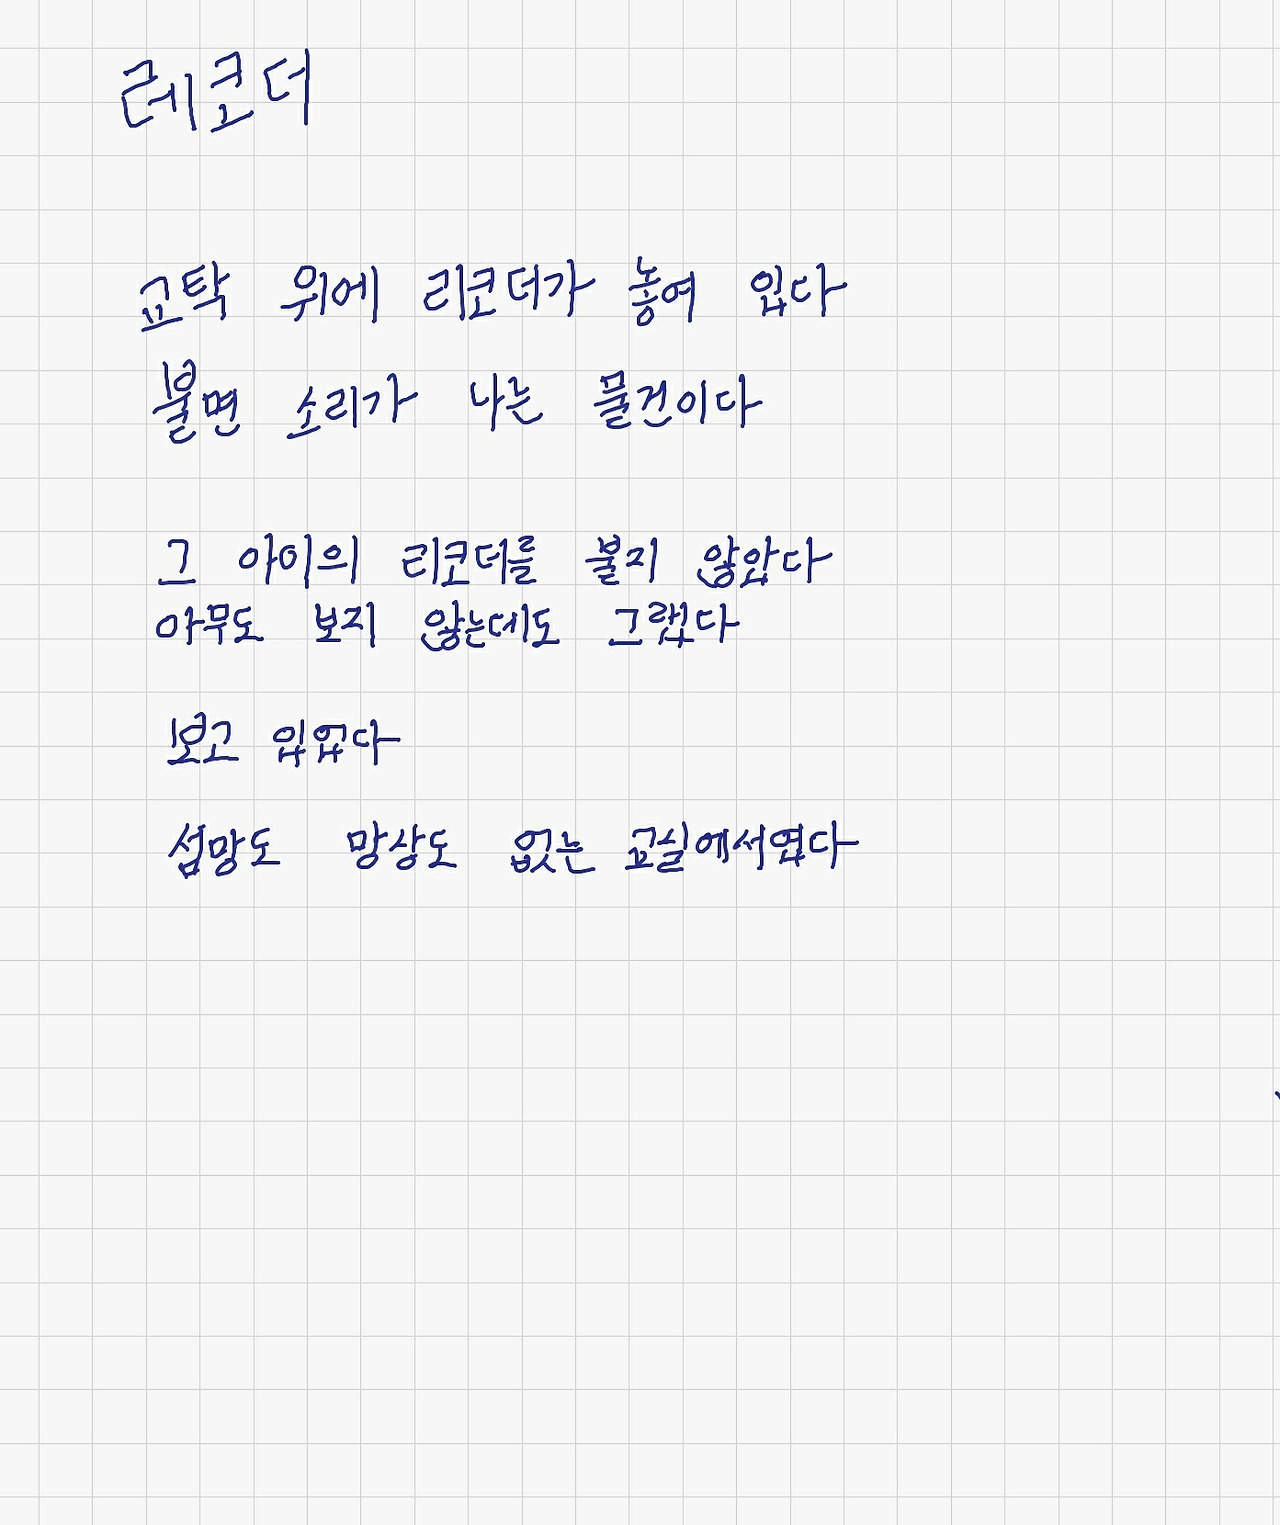 레코더
교탁 위에 리코더가 놓여 있다
불면 소리가 나는 물건이다
그 아이의 리코더를 불지 않았다
아무도 보지 않는데도 그랬다
보고 있었다
섬망도 망상도 없는 교실에서였다